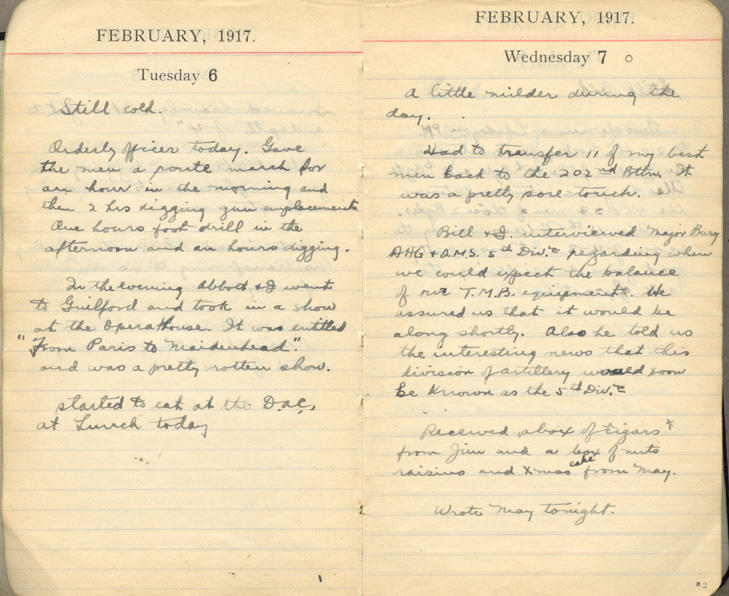 FEBRUARY, 1917.
Tuesday 6
Still cold.
Orderly officer today. Gave
the men a route march for
an hour in the morning and
then 2 hrs digging gun emplacements
One hours foot drill in the
afternoon and an hours digging.
In the evening Abbott & I went
to Guilford and took in a show
at the Opera House. It was entitled
"From Paris to Maidenhead".
and was a pretty rotten show.
started to eat at the D.A.C.
at Lunch today
FEBRUARY, 1917.
Wednesday 7
A little milder during the
day.
Had to transfer 11 of my best
men back to the 202nd Bttn. It
was a pretty sore touch.
Bill & I interviewed Major Burg
5th Div. regarding when
we could expect the balance
of our T.M.B. equipment. He
assured us that it would be
along shortly. Also he told us
the interesting news that this
division of artillery would soon
be known as the 5th Div.
Received a box of cigars
from Jim and a box of nuts
raisins and Xmas cake from May.
Wrote May tonight.